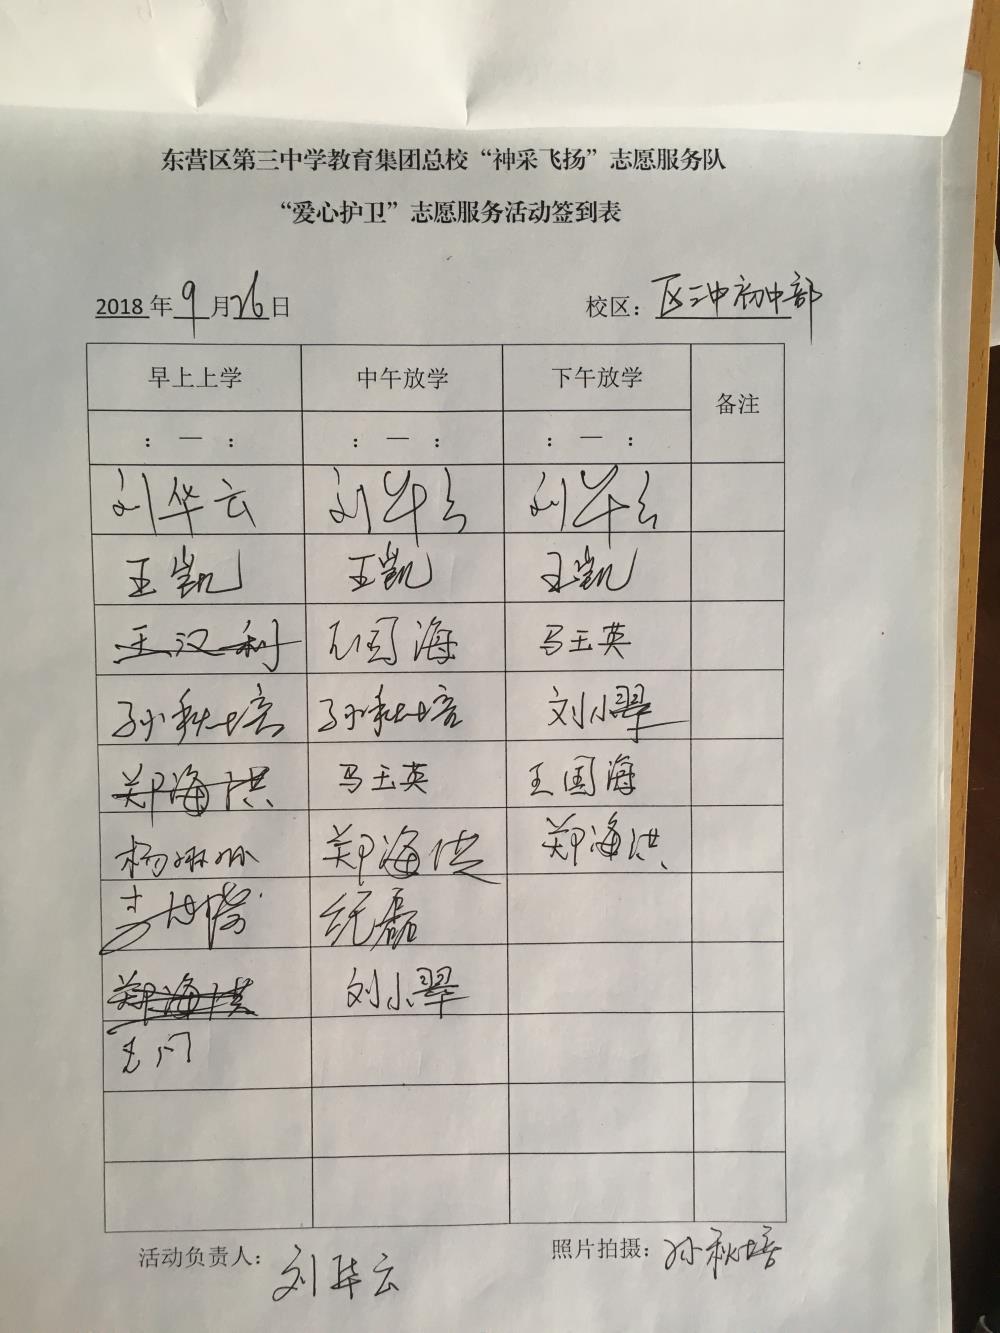 东营区第三中学教育集团总校“神采飞扬”志愿服务队
“爱心护卫”志愿服务活动签到表
2018年9月26日 校区：区三中初中部
早上上学 中午放学 下午放学 备注
： — ： ： — ： ： — ：
刘华云 刘华云 刘华云
王凯 王凯 王凯
王汉利 王国海 马玉英
孙秋培 孙秋培 刘小翠
郑海洪 马玉英 王国海
杨琳琳 郑海洪 郑海洪
纪磊
郑海洪 刘小翠
活动负责人：刘华云 照片拍摄：孙秋培